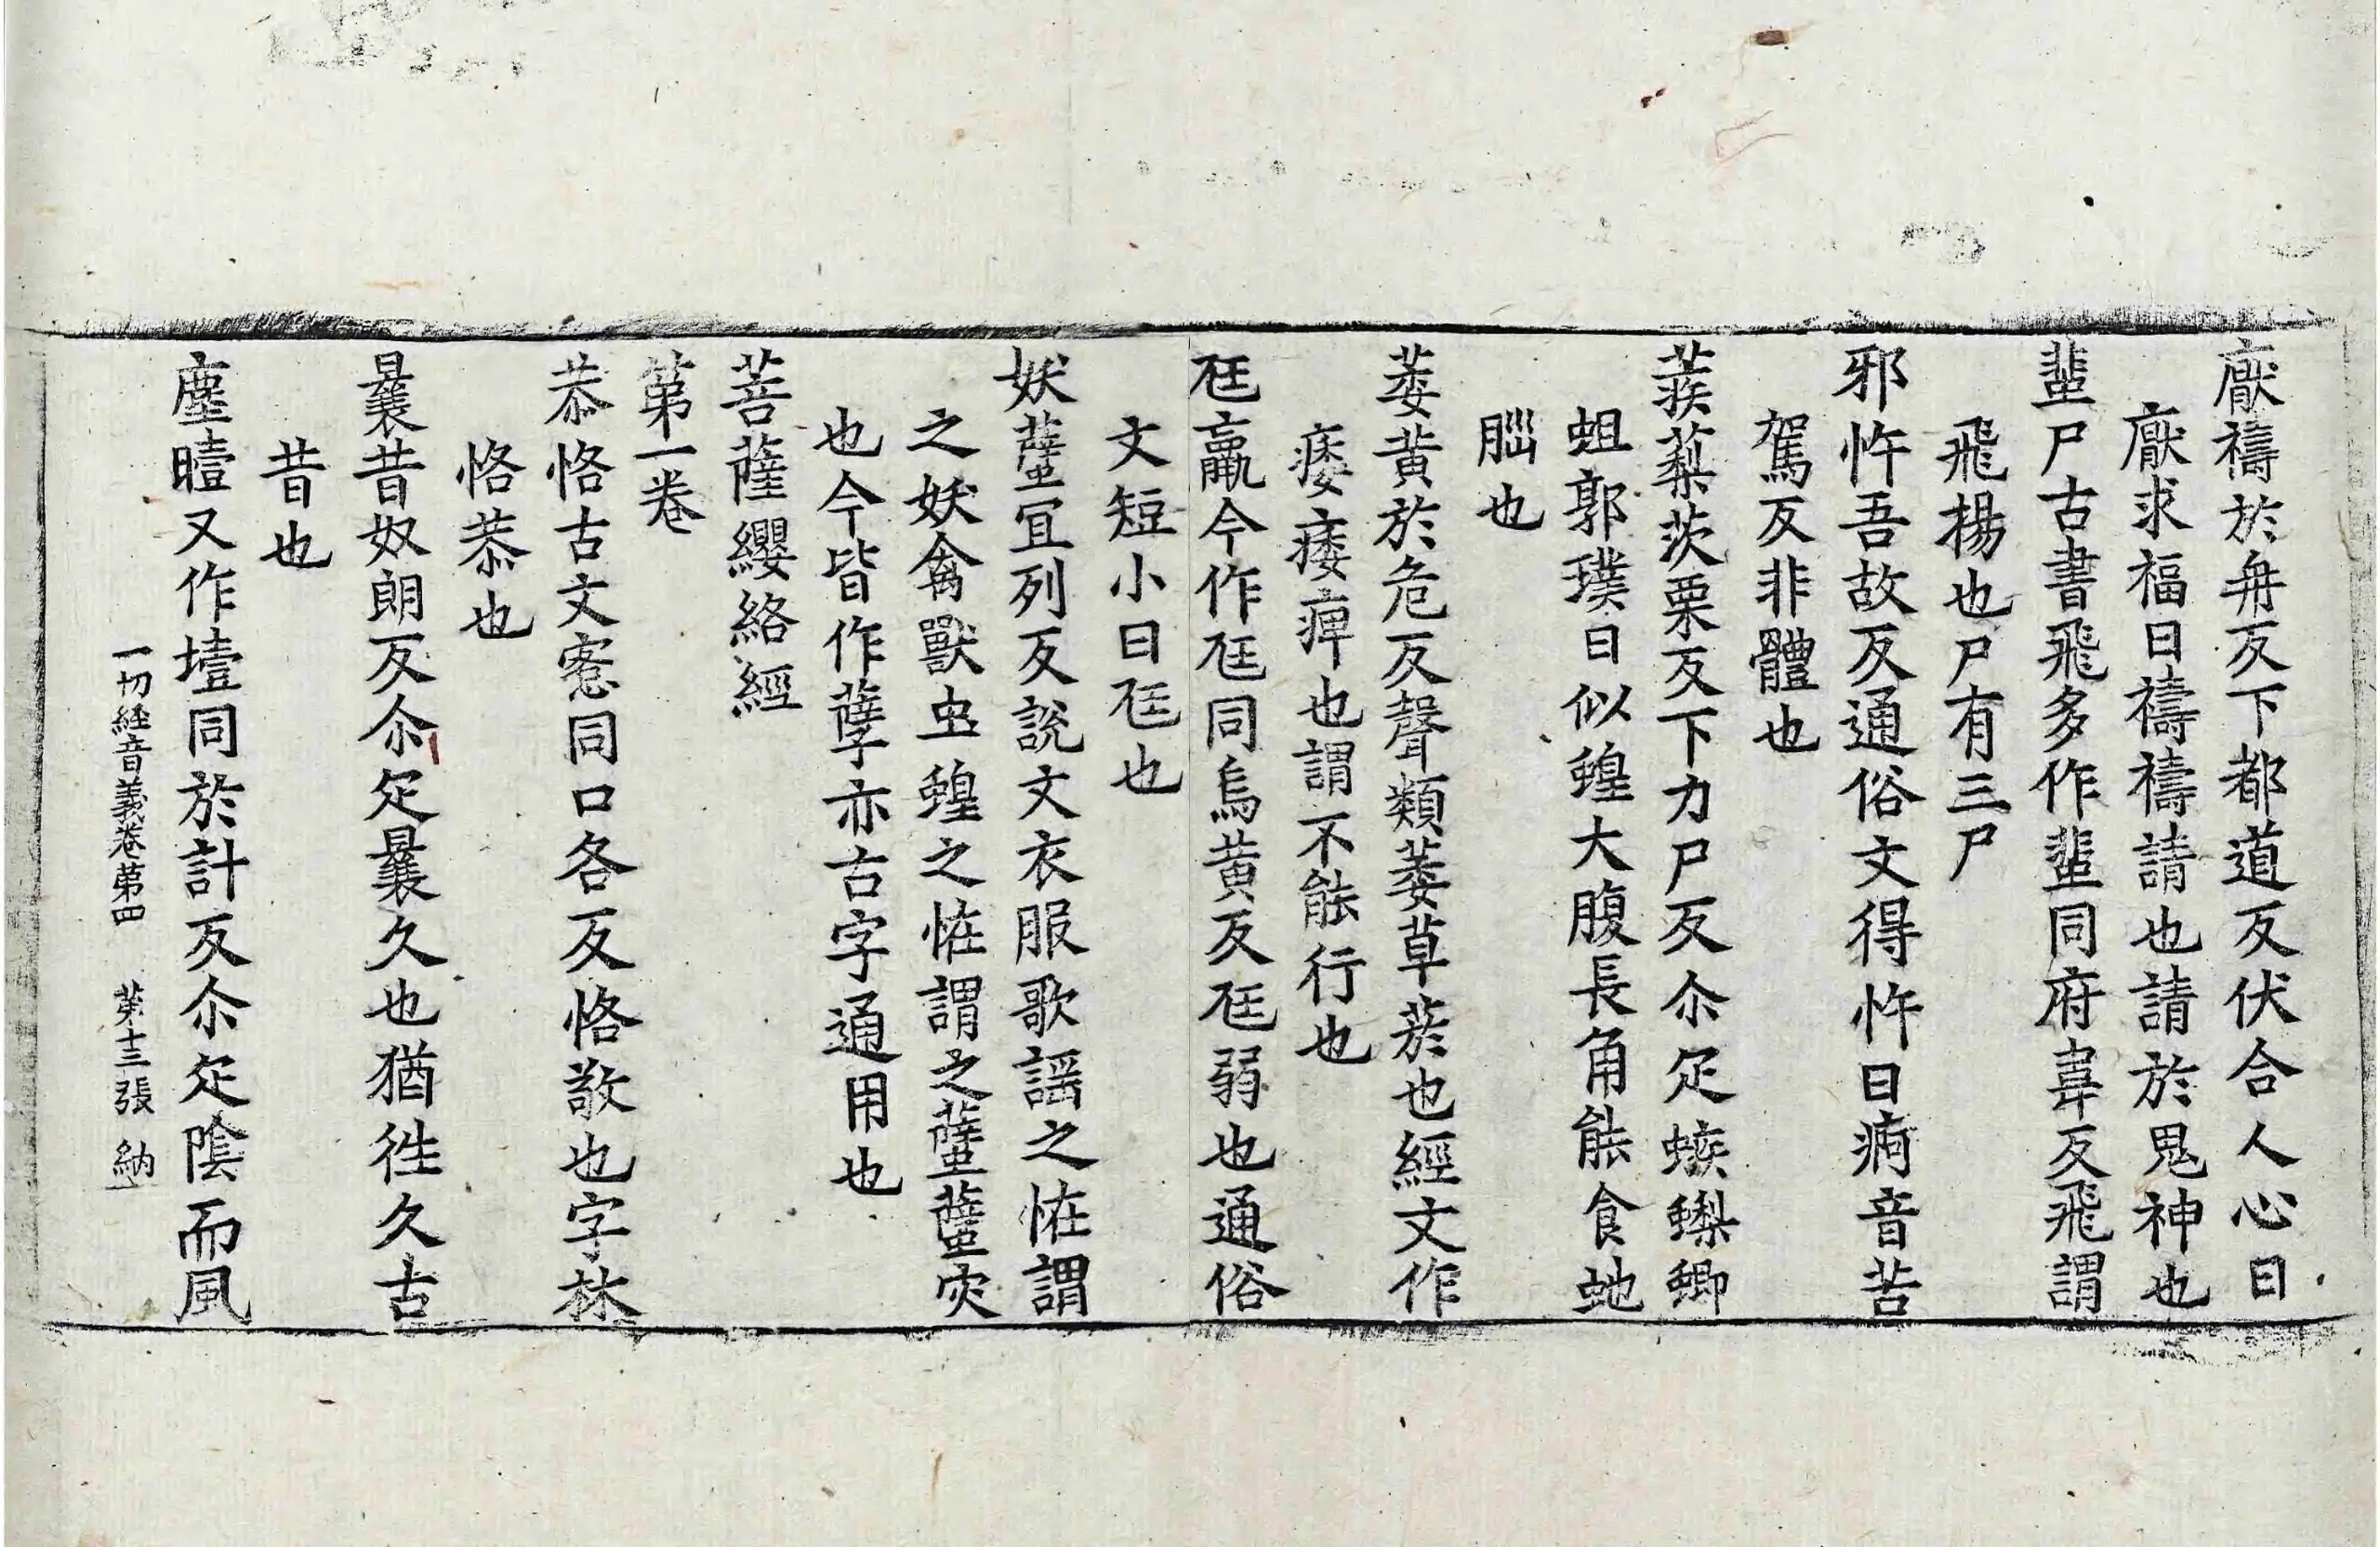 厭禱於冉反下都道反伏合人心曰
厭求福曰禱禱請也請於鬼神也
蜚尸古書飛多作蜚同府韋反飛謂
飛揚也尸有三尸
邪忤吾故反通俗文得忤曰痾音苦
駕反非體也
蒺䔧茨栗反下力尸反尒疋蛺蟍蝍
蛆郭璞曰似蝗大腹長角能食虵
𦛁也
萎黄於危反聲類萎草菸也經文作
痿痿痺也謂不能行也
尫羸今作尫同烏黄反尫弱也通俗
文短小曰尫也
妖𧀼冝列反說文衣服歌謡之恠謂
之妖禽獸虫蝗之恠謂之𧀼𧀼灾
也今皆作孽亦古字通用也
菩薩纓絡經
第一卷
恭恪古文愙同口各反恪敬也字林
恪恭也
曩昔奴朗反尒疋曩久也猶徃久古
昔也
塵曀又作壒同於計反尒疋陰而風
一切経音義卷第四 第十三張 納